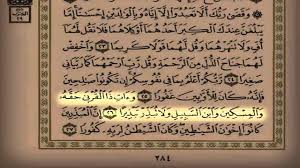 وَقَضَىٰ رَبُّكَ أَلَّا تَعْبُدُوا إِلَّا إِيَّاهُ وَبِالْوَالِدَيْنِ إِحْسَانًا إِمَّا
يَبْلُغَنَّ عِندَكَ الْكِبَرَ أَحَدُهُمَا أَوْ كِلَاهُمَا فَلَا تَقُل لَّهُمَا
أُفٍّ وَلَا تَنْهَرْهُمَا وَقُل لَّهُمَا قَوْلًا كَرِيمًا ٢٣ وَاخْفِضْ
لَهُمَا جَنَاحَ الذُّلِّ مِنَ الرَّحْمَةِ وَقُل رَّبِّ ارْحَمْهُمَا كَمَا رَبَّيَانِي
صَغِيرًا ٢٤ رَّبُّكُمْ أَعْلَمُ بِمَا فِي نُفُوسِكُمْ إِن تَكُونُوا صَالِحِينَ
فَإِنَّهُ كَانَ لِلْأَوَّابِينَ غَفُورًا ٢٥ وَآتِ ذَا الْقُرْبَىٰ حَقَّهُ
وَالْمِسْكِينَ وَابْنَ السَّبِيلِ وَلَا تُبَذِّرْ تَبْذِيرًا ٢٦ إِنَّ الْمُبَذِّرِينَ
كَانُوا إِخْوَانَ الشَّيَاطِينِ وَكَانَ الشَّيْطَانُ لِرَبِّهِ كَفُورًا ٢٧
٢٨٤